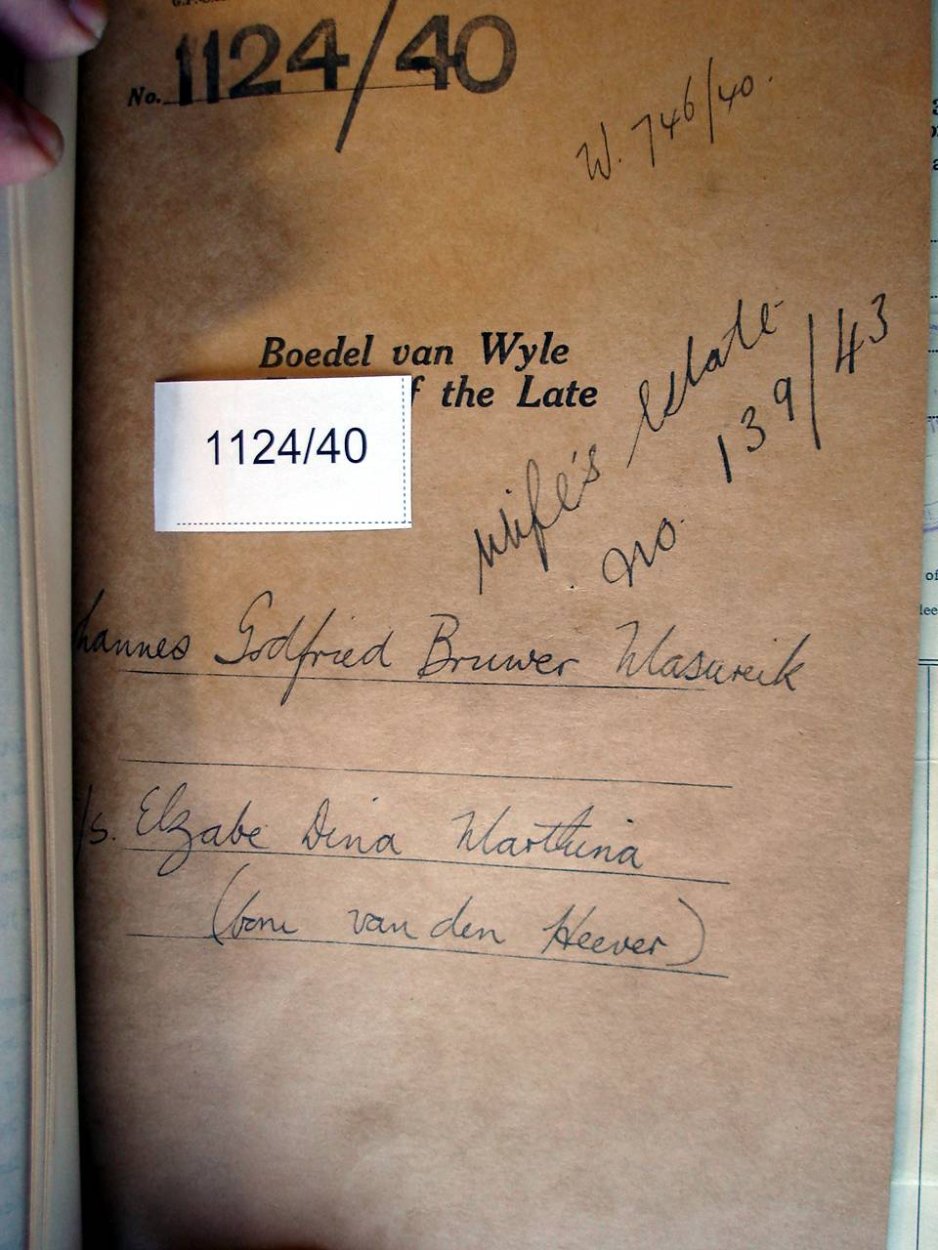 No. 1124/40
W. 746/40.
Boedel van Wyle
f the Late
1124/40
wife's estate
no. 139/43
hannes Godfried Bruwer Masureik
/s. Elzabe Dina Marthina
(born van den Heever)